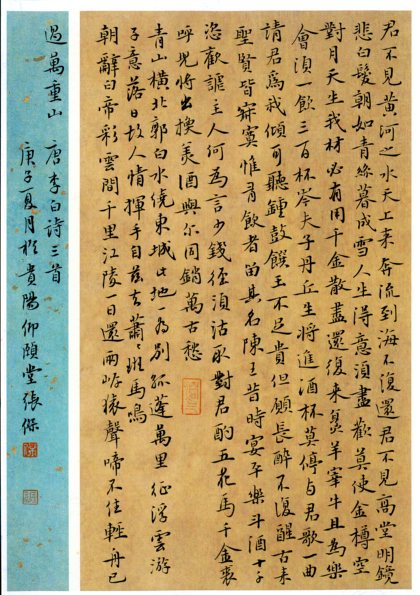 君不見黃河之水天上来奔流到海不復還君不見高堂明鏡
悲白髮朝如青絲暮成雪人生得意湏盡歡莫使金樽空
對月天生我材必有用千金散盡還復来烹羊宰牛且為樂
會湏一飲三百杯岑夫子丹丘生將進酒杯莫停与君歌一曲
請君爲我傾耳聽鍾鼓饌玉不足貴但願長醉不復醒古来
聖賢皆寂寞惟有飲者留其名陳王昔時宴平樂斗酒十千
恣歡謔主人何為言少錢徑湏沽取對君酌五花馬千金裘
呼兒將出換美酒與尔同銷萬古愁
青山橫北郭白水繞東城此地一為別孤蓬萬里征浮雲游
子意落日故人情揮手自兹去蕭〻班馬鳴
朝辭白帝彩雲間千里江陵一日還兩岸猿聲啼不住輕舟已
過萬重山 唐李白诗三首
庚子夏月於貴陽仰頤堂張傑